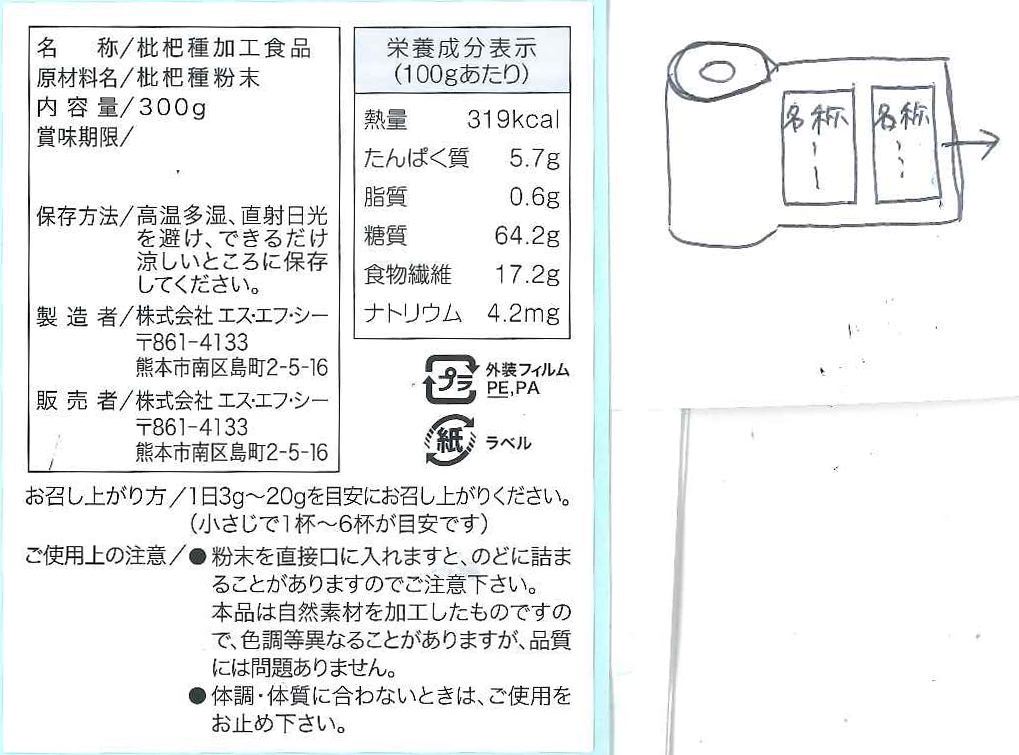 名 称/枇杷種加工食品
原材料名/枇杷種粉末
内容量/300g
賞味期限/
保存方法/高温多湿、直射日光
を避け、できるだけ
涼しいところに保存
してください。
製造者/株式会社 エス・エフ・シー
〒861-4133
熊本市南区島町2-5-16
販売者/株式会社 エス・エフ・シー
〒861-4133
熊本市南区島町2-5-16
栄養成分表示
(100gあたり)
熱量 319kcal
たんぱく質 5.7g
脂質 0.6g
糖質 64.2g
食物繊維 17.2g
ナトリウム 4.2mg
プラ 外装フィルム
PE,PA
紙 ラベル
お召し上がり方/1日3g〜20gを目安にお召し上がりください。
(小さじで1杯〜6杯が目安です)
ご使用上の注意/●粉末を直接口に入れますと、のどに詰ま
ることがありますのでご注意下さい。
本品は自然素材を加工したものですの
で、色調等異なることがありますが、品質
には問題ありません。
●体調・体質に合わないときは、ご使用を
お止め下さい。
名称
名称